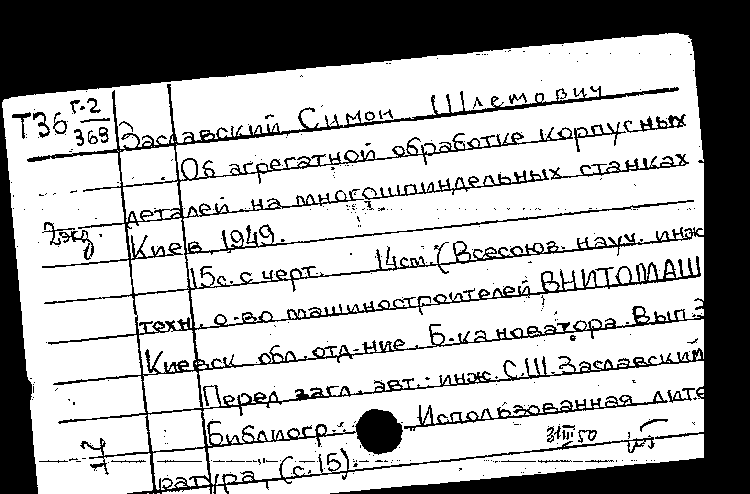 Т36 г-2
369
Заславский, Симон Шлемович
Об агрегатной обработке корпусных
деталей на многошпиндельных станках.
2экз.
Киев, 1949.
15с. с черт. 14см. (Всесоюз. науч. инж
техн. о-во машиностроителей ВНИТОМАШ
Киевск обл. отд-ние. Б-ка новатора. Вып 3
Перед загл. авт.: инж. С.Ш. Заславский
Библиогр.: "Использованная лите
ратура", (с.15).
31 III 50